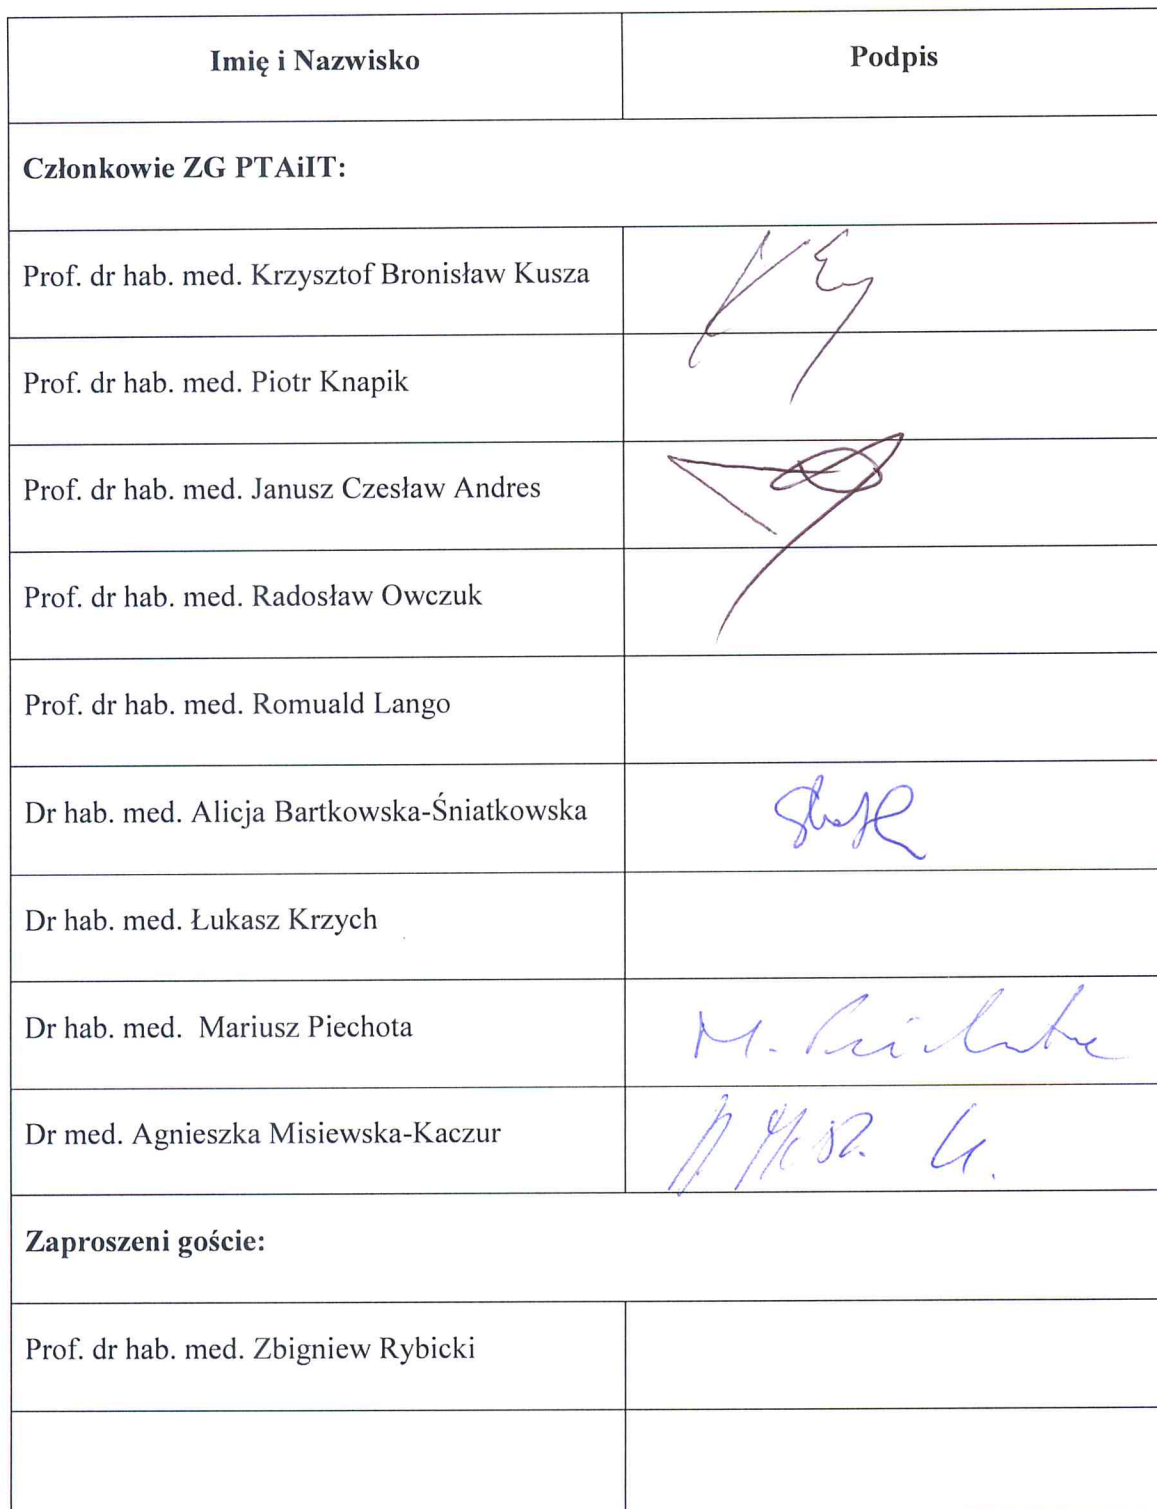 Imię i Nazwisko
Podpis
Członkowie ZG PTAiIT:
Prof. dr hab. med. Krzysztof Bronisław Kusza
Prof. dr hab. med. Piotr Knapik
Prof. dr hab. med. Janusz Czesław Andres
Prof. dr hab. med. Radosław Owczuk
Prof. dr hab. med. Romuald Lango
Dr hab. med. Alicja Bartkowska-Śniatkowska
Dr hab. med. Łukasz Krzych
Dr hab. med. Mariusz Piechota
M. Piechota
Dr med. Agnieszka Misiewska-Kaczur
Zaproszeni goście:
Prof. dr hab. med. Zbigniew Rybicki